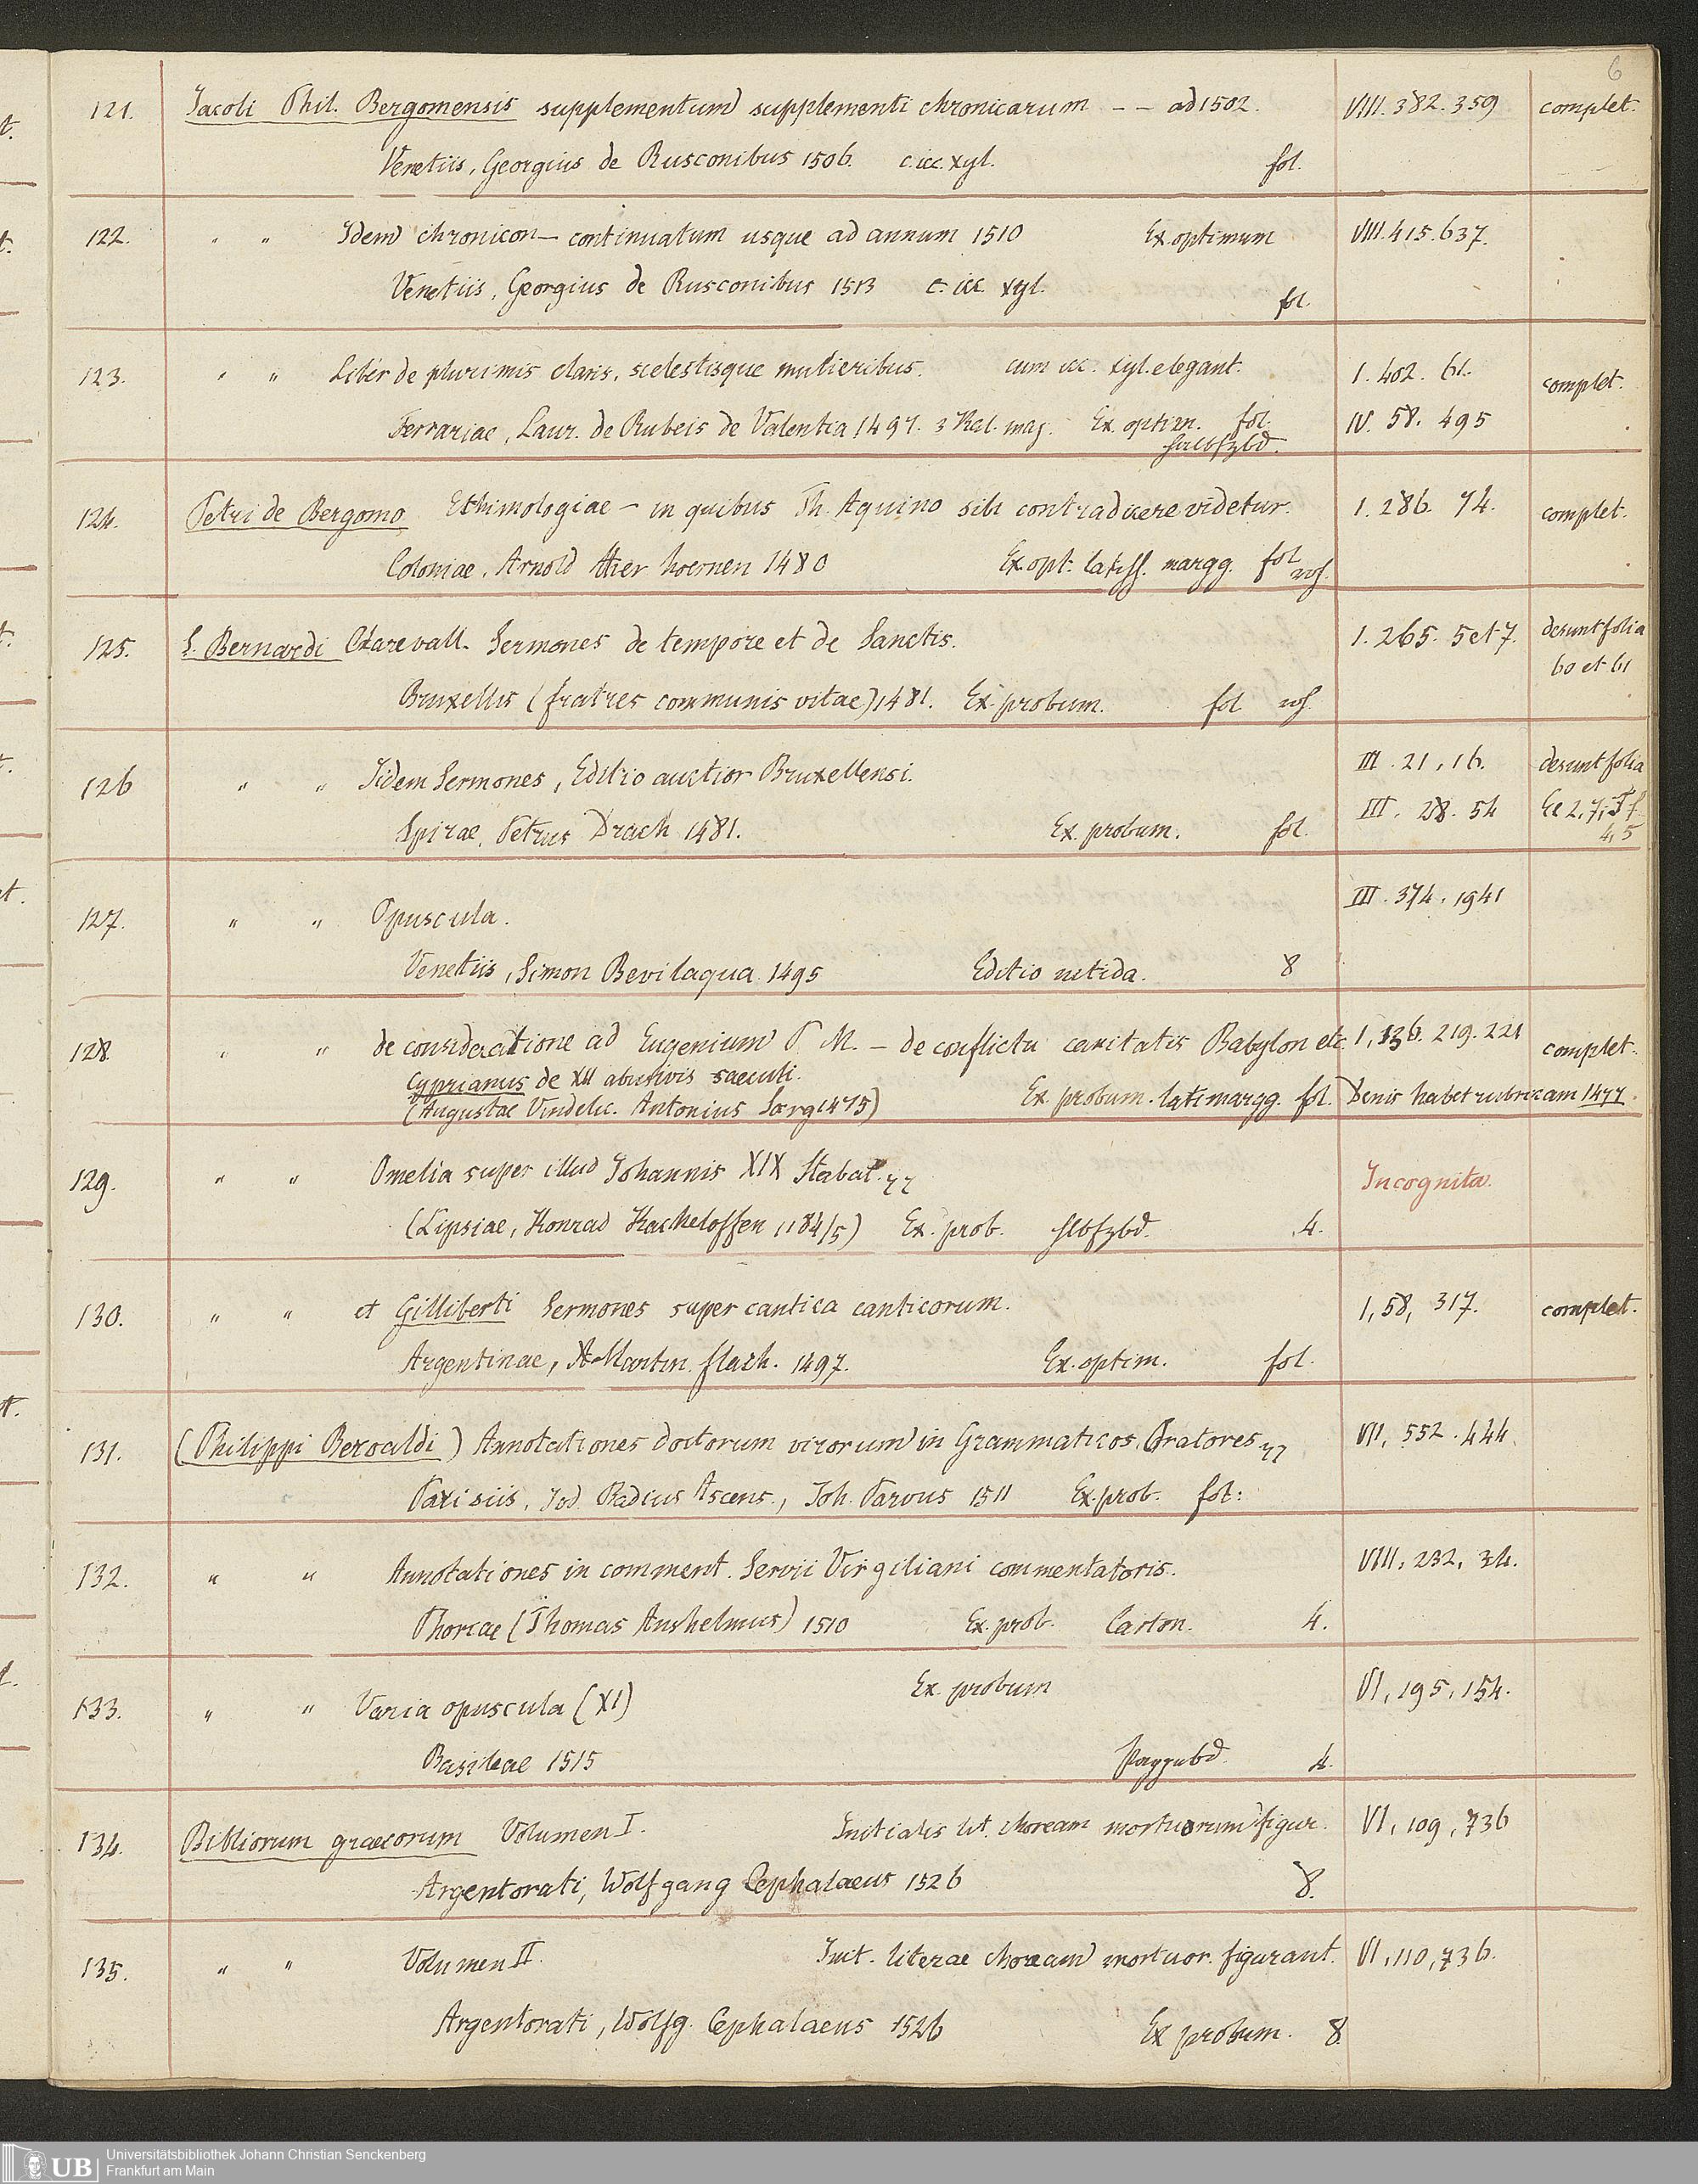 6
121. Jacobi Phil. Bergomensis supplementum supplementi chronicarum – – ad 1502. VIII. 382. 359 complet.
Venetiis, Georgius de Rusconibus 1506. c. icc. xyl. fol.
122. " " Idem chronicon – continuatum usque ad annum 1510 Ex. optimum VIII. 415. 637.
Venetiis, Georgius de Rusconibus 1513 c. icc. xyl. fol.
123. " " Liber de plurimis claris, scelestisque mulieribus. cum icc. xyl. elegant. I. 402. 61. complet.
Ferrariae, Laur. de Rubeis de Valentia 1497. 3 Kal. maj. Ex. optim. fol. IV. 58. 495
124. Petri de Bergomo Ethimologiae – in quibus Th. Aquino sibi contradicere videtur. I. 286. 74. complet.
Coloniae, Arnold ther hoernen 1480 Ex. opt. latiss. margg. fol. roh.
125. S. Bernardi Clarevall. Sermones de tempore et de Sanctis. I. 265. 5 et 7. desunt folia
60 et 61
Bruxellis (fratres communis vitae) 1481. Ex. probum. fol. roh.
126 " " Iidem Sermones, Editio auctior Bruxellensi. III. 21, 16. desunt folia
Spirae, Petrus Drach 1481. Ex. probum. fol. III. 28. 54 Ee 2, 7, Ff.
4, 5
127. " " Opuscula. III. 374. 1941
Venetiis, Simon Bevilaqua. 1495 Editio nitida. 8
128. " " de consideratione ad Eugenium P. M. – de conflictu caritatis Babylon etc. I, 136. 219. 221 complet.
Cyprianus de XII abusivis saeculi.
(Augustae Vindelic. Antonius Sorg 1475) Ex. probum. lati margg. fol. Denis habet rubricam 1477.
129. " " Omelia super illud Johannis XIX Stabat. Incognita.
(Lipsiae, Konrad Kacheloffen 1184/5) Ex. prob. Hlbfzbd. 4.
130. " " et Gilliberti Sermones super cantica canticorum. I, 58, 317. complet.
Argentinae, Martin. flach. 1497. Ex. optim. fol.
131. (Philippi Beroaldi) Annotationes doctorum virorum in Grammaticos, Oratores VII, 552. 444.
Parisiis, Jod. Badius Ascens., Joh. Parvus 1511 Ex. prob. fol:
132. " " Annotationes in comment. Servii Virgiliani commentatoris. VIII, 232, 34.
Phorcae (Thomas Anshelmus) 1510 Ex. prob. Carton. 4.
133. " " Varia opuscula (XI) Ex. probum VI, 195, 154.
Basileae 1515 Pappbd. 4.
134. Bibliorum graecorum Volumen I. Initiales lit. choream mortuorum figur. VI, 109, 736
Argentorati, Wolfgang Cephalaeus 1526 8.
135. " " Volumen II. Init. literae choream mortuor. figurant. VI, 110, 736.
Argentorati, Wolfg. Cephalaeus 1526 Ex probum. 8.
UB Universitätsbibliothek Johann Christian Senckenberg
Frankfurt am Main